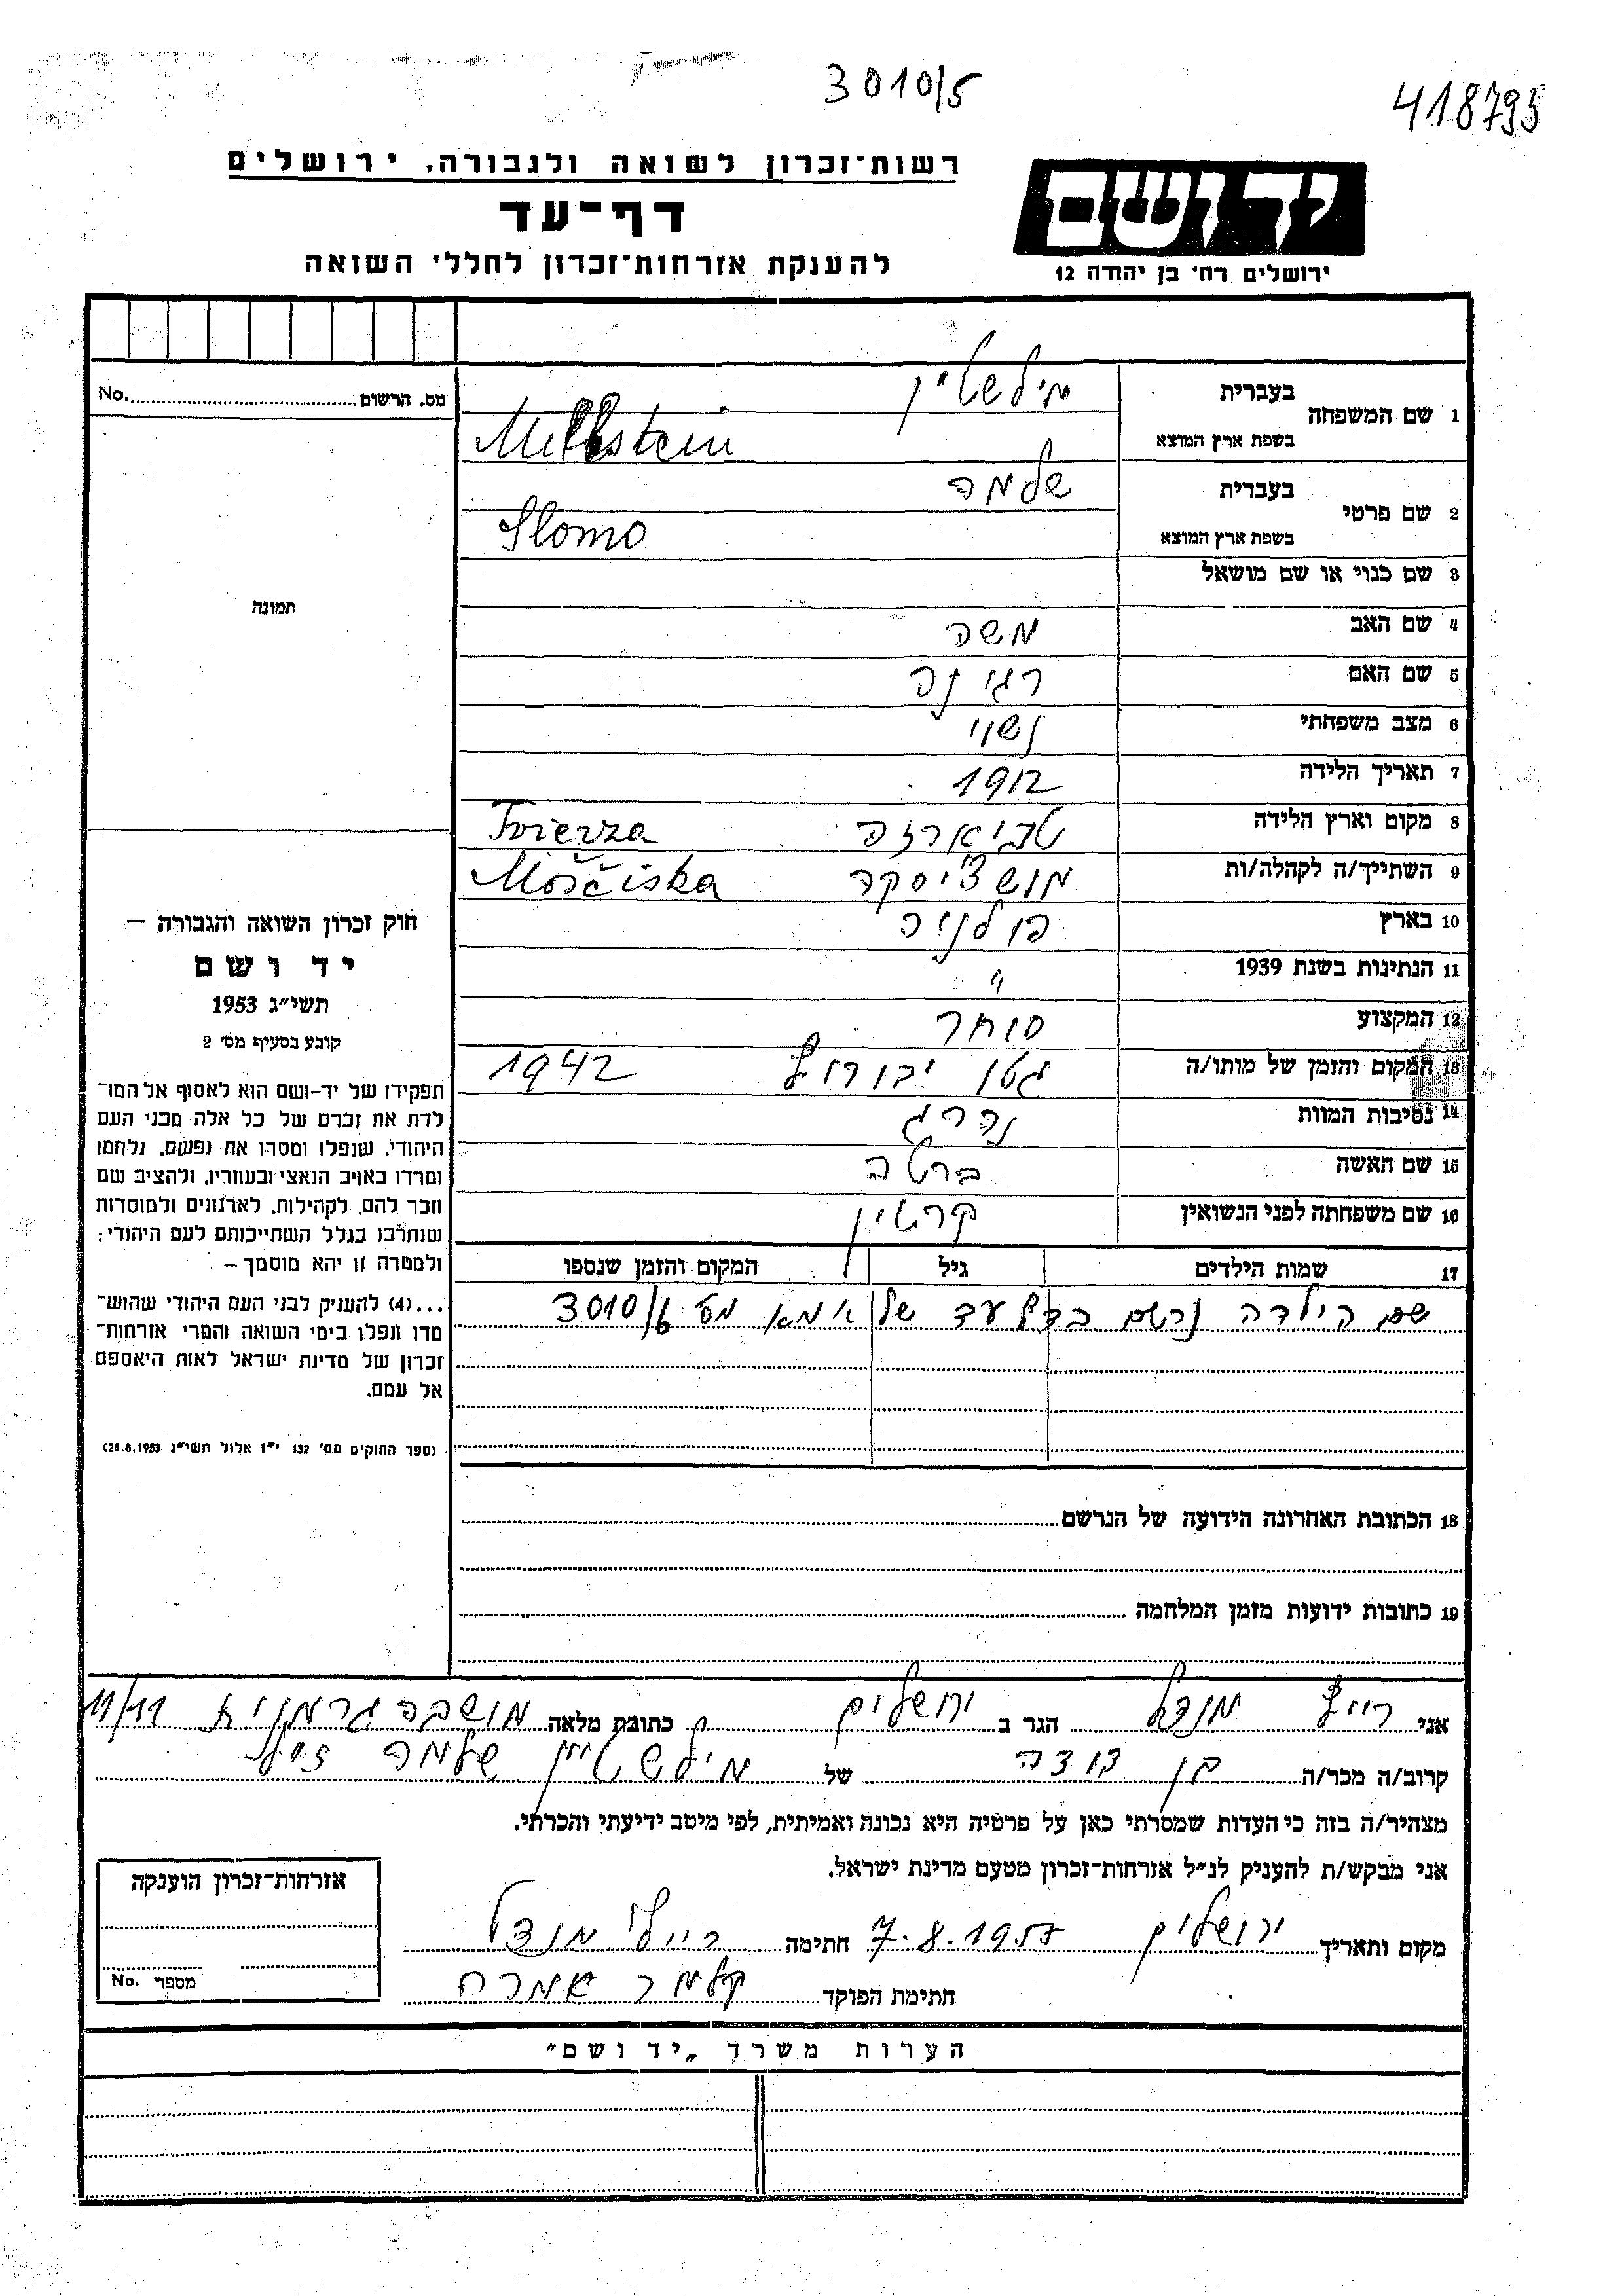 3010/5
418795
רשות־זכרון לשואה ולגבורה, ירושלים
דף־עד
להענקת אזרחות־זכרון לחללי השואה
יד ושם
ירושלים רח' בן יהודה 12
מס. הרשום No.
תמונה
1 שם המשפחה בעברית מילשטיין
בשפת ארץ המוצא Millstein
2 שם פרטי בעברית שלמה
בשפת ארץ המוצא Slomo
3 שם כנוי או שם מושאל
4 שם האב משה
5 שם האם רגינה
6 מצב משפחתי נשוי
7 תאריך הלידה 1912
8 מקום וארץ הלידה טביארזה Tvierza
9 השתייך/ה לקהלה/ות מושצ'יסקה Moščiska
10 בארץ פולניה
11 הנתינות בשנת 1939 "
12 המקצוע סוחר
13 המקום והזמן של מותו/ה גטו יבורוב 1942
14 נסיבות המוות נהרג
15 שם האשה ברטה
16 שם משפחתה לפני הנשואין קרטין
17 שמות הילדים גיל המקום והזמן שנספו
שם הילדה נרשם בדף עד של אמא מס 3010/6
18 הכתובת האחרונה הידועה של הנרשם
19 כתובות ידועות מזמן המלחמה
חוק זכרון השואה והגבורה —
יד ושם
תשי"ג 1953
קובע בסעיף מס' 2
תפקידו של יד-ושם הוא לאסוף אל המו־
לדת את זכרם של כל אלה מבני העם
היהודי, שנפלו ומסרו את נפשם, נלחמו
ומרדו באויב הנאצי ובעוזריו, ולהציב שם
וזכר להם, לקהילות, לארגונים ולמוסדות
שנחרבו בגלל השתייכותם לעם היהודי;
ולמטרה זו יהא מוסמך –
...(4) להעניק לבני העם היהודי שהוש־
מדו ונפלו בימי השואה והמרי אזרחות־
זכרון של מדינת ישראל לאות היאספם
אל עמם.
(ספר החוקים מס' 132 י"ז אלול תשי"ג 28.8.1953)
אני רייף מנדל הגר ב ירושלים כתובת מלאה מושבה גרמנית 11/11
קרוב/ה מכר/ה בן דודה של מילשטיין שלמה ז"ל
מצהיר/ה בזה כי העדות שמסרתי כאן על פרטיה היא נכונה ואמיתית, לפי מיטב ידיעתי והכרתי.
אני מבקש/ת להעניק לנ"ל אזרחות־זכרון מטעם מדינת ישראל.
מקום ותאריך ירושלים 7.8.1957 חתימה רייף מנדל
חתימת הפוקד
אזרחות־זכרון הוענקה
מספר No.
הערות משרד „יד ושם"